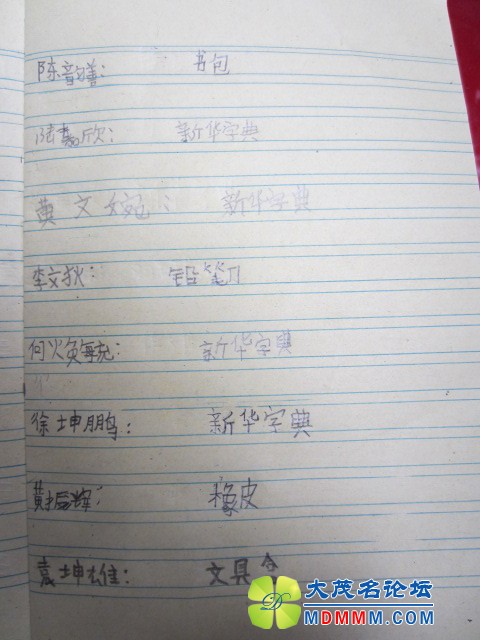 陈韵善： 书包
陆嘉欣： 新华字典
黄文婉： 新华字典
李文狄： 铅笔刀
何火灸毓： 新华字典
徐坤鹏： 新华字典
黄辉： 橡皮
袁坤雄： 文具盒
大茂名论坛
MDMMM.COM